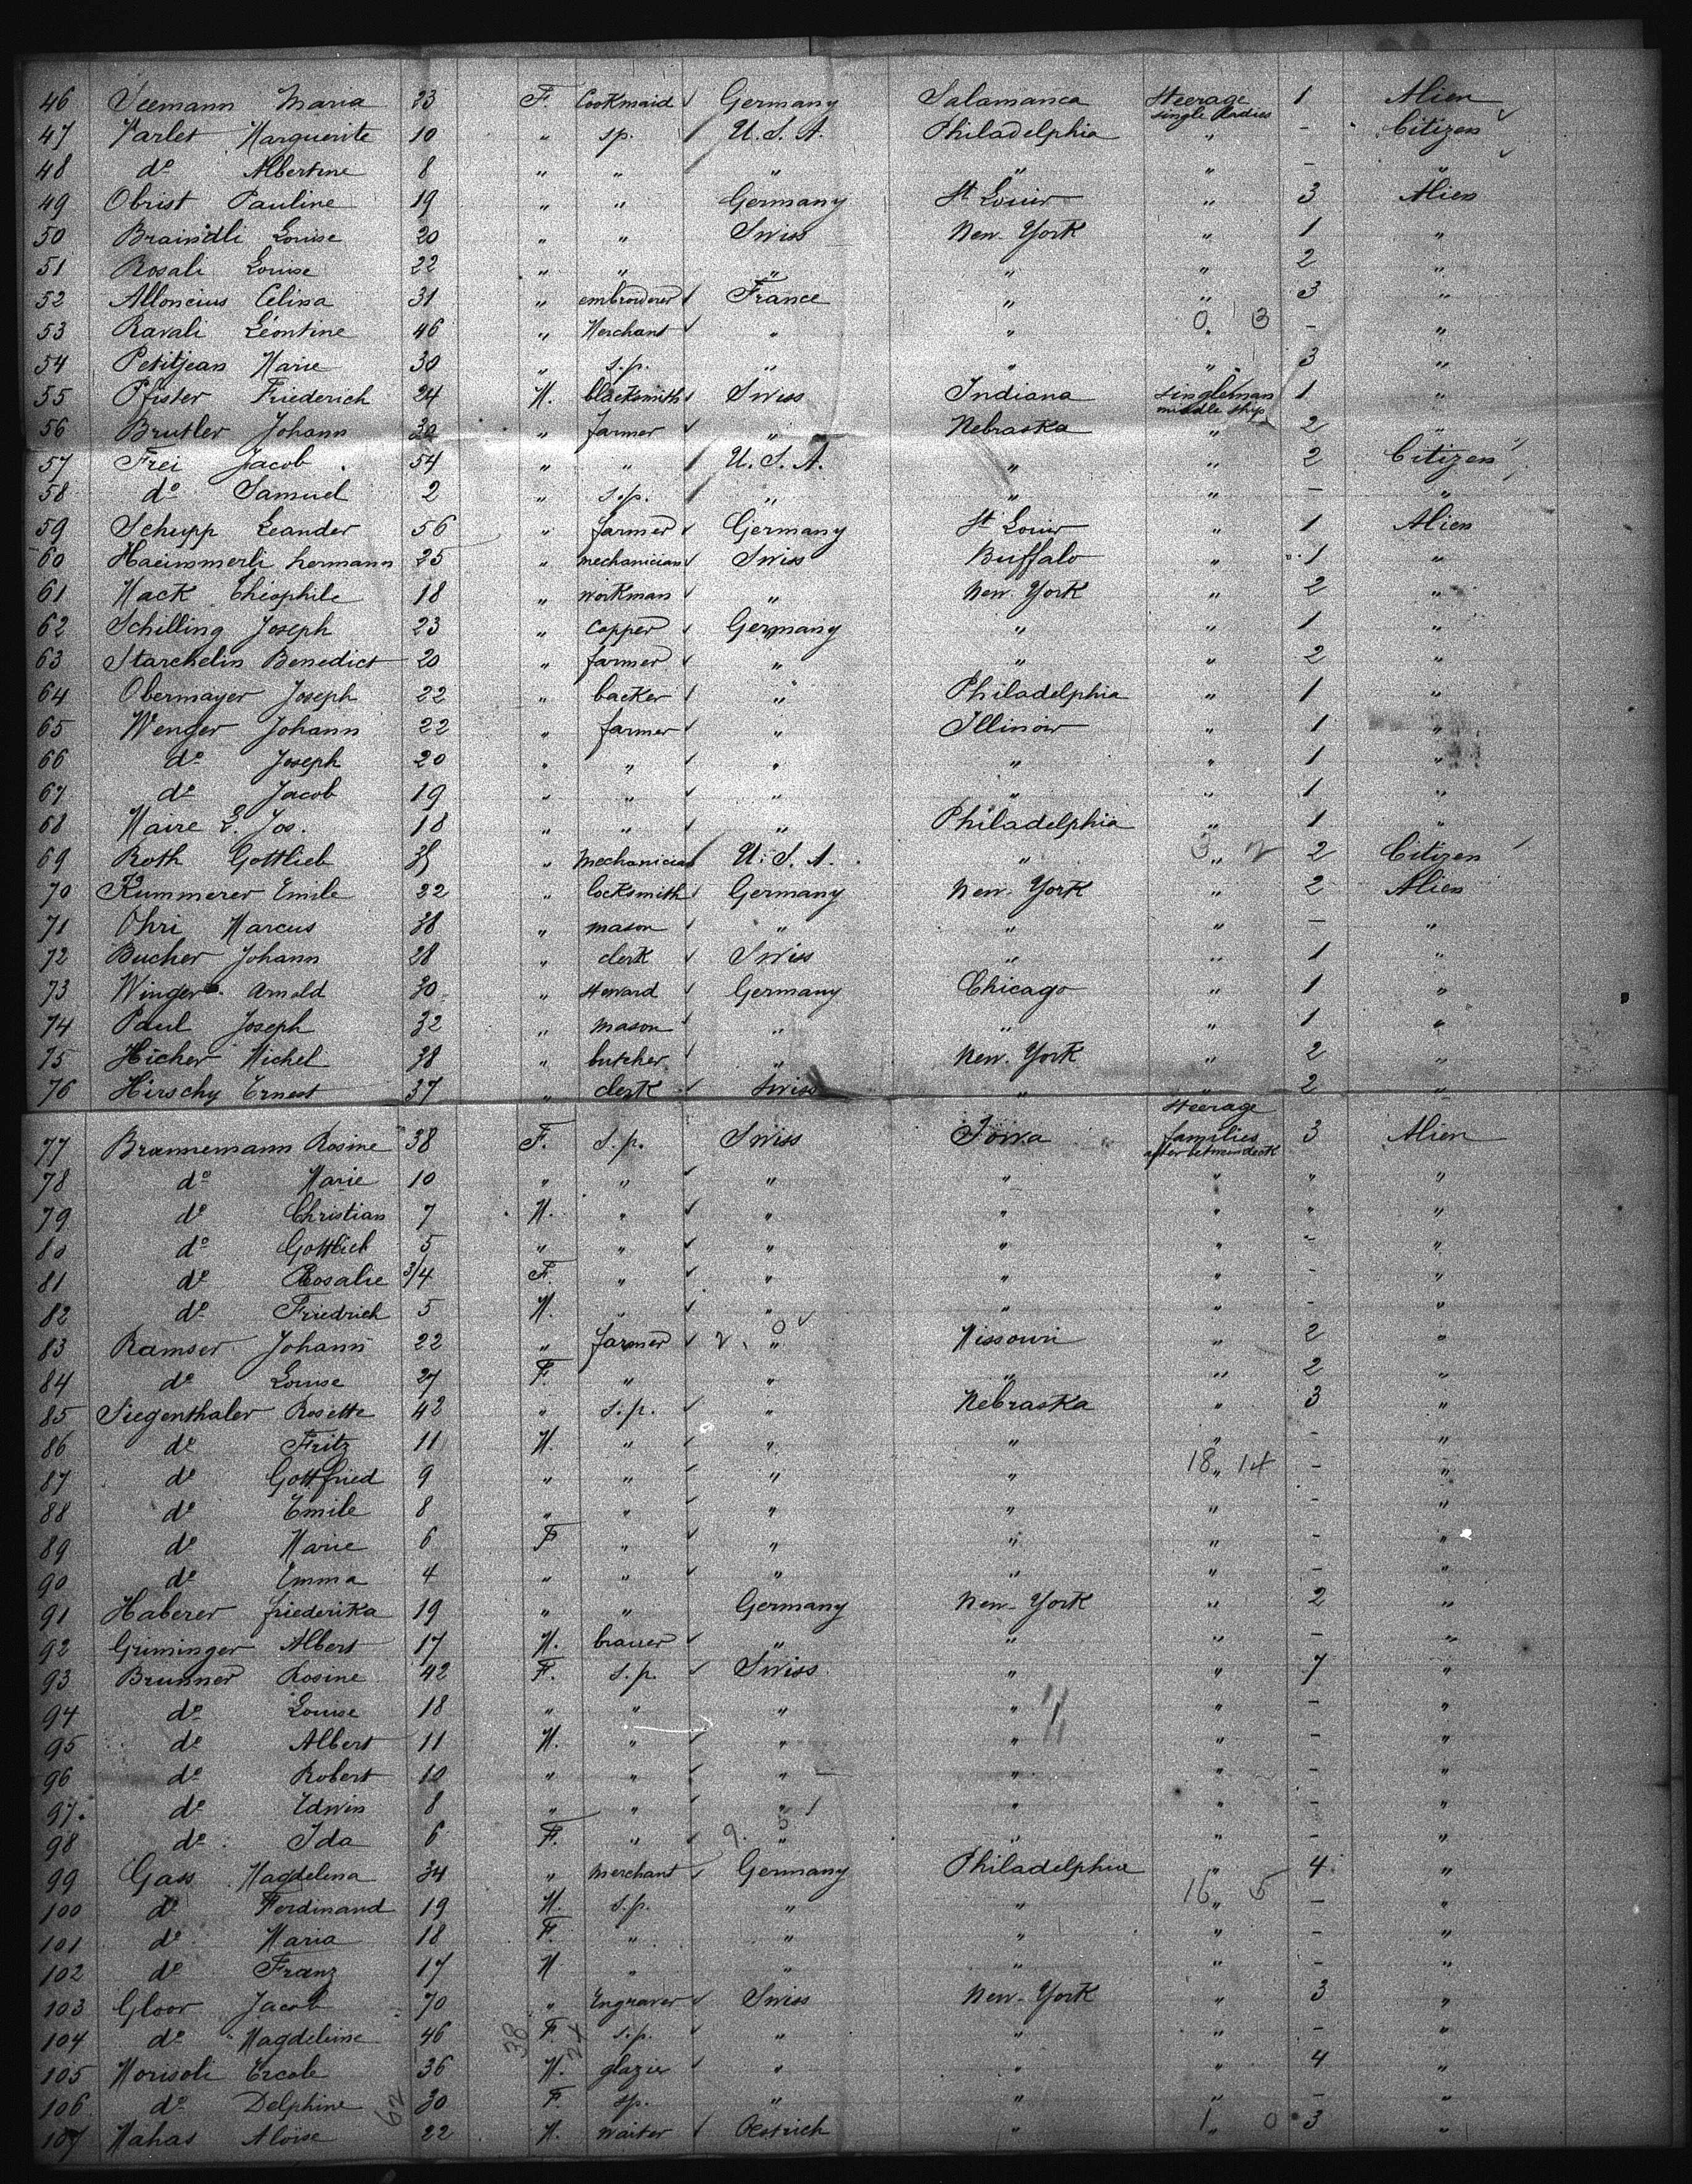 46 Seemann Maria 23 F. Cookmaid Germany Salamanca Steerage single Ladies 1 Alien
47 Varlet Marguerite 10 " sp. U.S.A. Philadelphia " - Citizen
48 do Albertine 8 " " " " " - "
49 Obrist Pauline 19 " " Germany St Louis " 3 Alien
50 Braindli Louise 20 " " Swiss New-York " 1 "
51 Rosali Louise 22 " " " " " 2 "
52 Alloncius Celina 31 " embroiderer France " " 3 "
53 Ravali Léontine 46 " Merchant " " 0 " 3 - "
54 Petitjean Marie 30 " s.p. " " " 3 "
55 Pfister Friederich 24 M. blacksmith Swiss Indiana singleman middle ship 1 "
56 Brutler Johann 30 " farmer " Nebraska " 2 "
57 Frei Jacob 54 " " U.S.A. " " 2 Citizen
58 do Samuel 2 " s.p. " " " - "
59 Schupp Leander 56 " farmer Germany St Louis " 1 Alien
60 Haemmerli hermann 25 " mechanician Swiss Buffalo " 1 "
61 Mack Théophile 18 " workman " New-York " 2 "
62 Schilling Joseph 23 " Copper Germany " " 1 "
63 Starchelin Benedict 20 " farmer " " " 2 "
64 Obermayer Joseph 22 " backer " Philadelphia " 1 "
65 Wenger Johann 22 " farmer " Illinois " 1 "
66 do Joseph 20 " " " " " 1 "
67 do Jacob 19 " " " " " 1 "
68 Maire E. Jos. 18 " " " Philadelphia " 1 "
69 Roth Gottlieb " mechanician U.S.A. " 3 " 2 2 Citizen
70 Kummerer Emile 22 " locksmith Germany New-York " 2 Alien
71 Ohri Marcus 38 " mason " " " - "
72 Bucher Johann 28 " clerk Swiss " " 1 "
73 Winger Arnold 30 " steward Germany Chicago " 1 "
74 Paul Joseph 32 " mason " " " 1 "
75 Hicher Michel 38 " butcher " New-York " 2 "
76 Hirschy Ernest 37 " clerk Swiss " " 2 "
77 Brannemann Rosine 38 F. s.p. Swiss Iowa Steerage families after betweendeck 3 Alien
78 do Marie 10 " " " " " " "
79 do Christian 7 M. " " " " " "
80 do Gottlieb 5 " " " " " - "
81 do Rosalie 3/4 F. " " " " - "
82 do Friedrich 5 M. " " " " - "
83 Ramser Johann 22 " farmer 2. 0 " Missouri " 2 "
84 do Louise 27 F. " " " " 2 "
85 Siegenthaler Rosette 42 " s.p. " Nebraska " 3 "
86 do Fritz 11 M. " " " " - "
87 do Gottfried 9 " " " " 18 " 14 - "
88 do Emile 8 " " " " " - "
89 do Marie 6 F " " " " - "
90 do Emma 4 " " " " " - "
91 Haberer friederika 19 " " Germany New-York " 2 "
92 Griminger Albert 17 M. brauer " " " - "
93 Brunner Rosine 42 F. s.p. Swiss " " 7 "
94 do Louise 18 " " " " " - "
95 do Albert 11 M. " " " " - "
96 do Robert 10 " " " " " - "
97 do Edwin 8 " " " " " - "
98 do Ida 6 F. " 9. 5 " " " - "
99 Gass Magdelena 34 " merchant Germany Philadelphia " 4 "
100 do Ferdinand 19 M. s.p. " " 16 " 5 - "
101 do Maria 18 F. " " " " - "
102 do Franz 17 M " " " " - "
103 Gloor Jacob 70 " Engraver Swiss New-York " 3 "
104 do Magdeleine 46 38 F 24 s.p. " " " - "
105 Morisoli Ercole 36 M. glazier " " " 4 "
106 do Delphine 62 30 F. sp. " " " - "
107 Mahas Aloïse 22 M. waiter Oestrich " 1 " 0 3 "